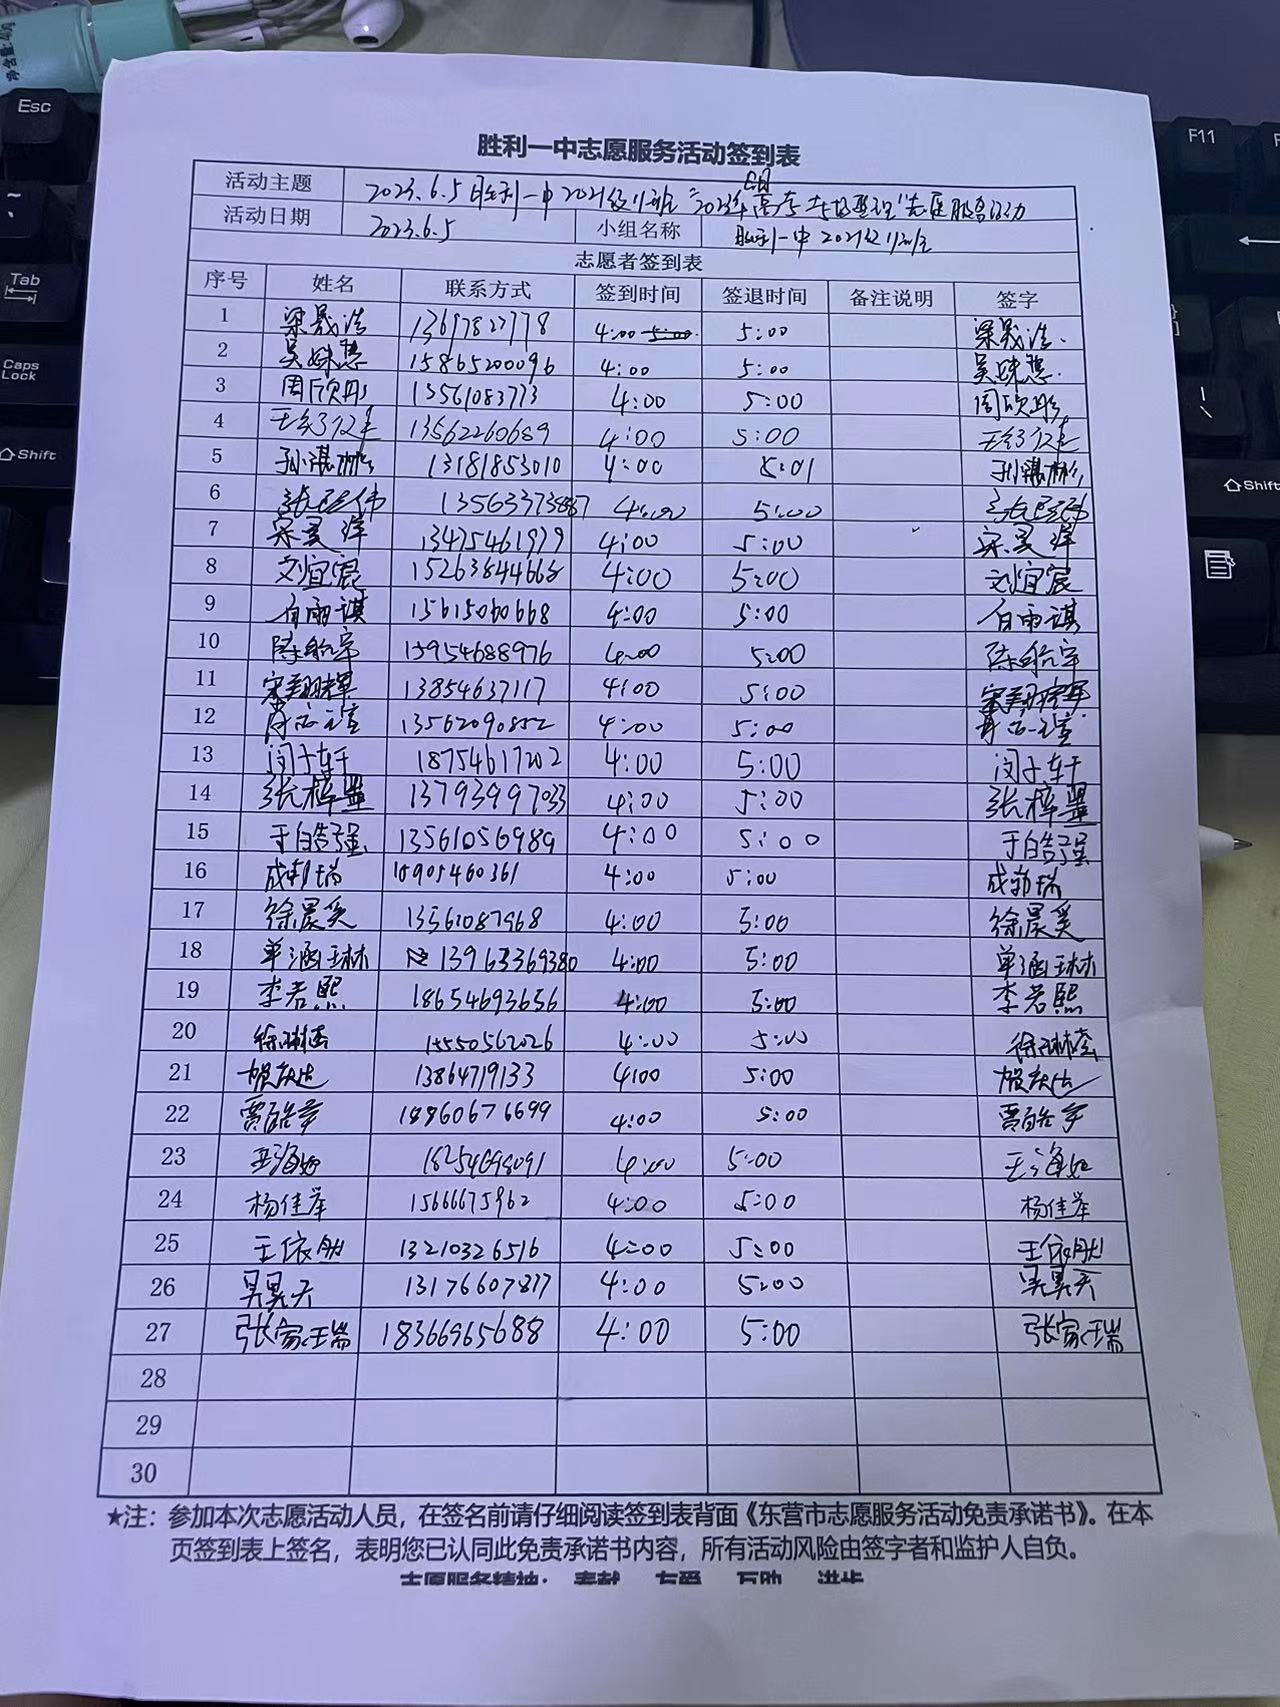 净含量:40g
Esc
F11
Tab
Caps Lock
Shift
Shift
胜利一中志愿服务活动签到表
活动主题 2023.6.5胜利一中2021级11班"2023年高考考场整理"志愿服务活动
活动日期 2023.6.5 小组名称 胜利一中2021级11班
志愿者签到表
序号 姓名 联系方式 签到时间 签退时间 备注说明 签字
1 梁晟浩 4:00 5:00 5:00 梁晟浩
2 15865200096 4:00 5:00
3 周欣彤 13561083773 4:00 5:00 周欣彤
4 13562260689 4:00 5:00
5 孙湛彬 13181853010 4:00 5:01 孙湛彬
6 4:00 5:00
7 宋昊洋 13475461979 4:00 5:00 宋昊洋
8 刘宜宸 15263844668 4:00 5:00 刘宜宸
9 白雨祺 15615060668 4:00 5:00 白雨祺
10 陈航宇 15954688976 4:00 5:00 陈航宇
11 宋翔辉 13854637117 4:00 5:00 宋翔辉
12 13562090852 4:00 5:00
13 闵子轩 18754617202 4:00 5:00 闵子轩
14 张梓墨 13793997033 4:00 5:00 张梓墨
15 于皓强 13561056989 4:00 5:00 于皓强
16 15905460361 4:00 5:00
17 徐晨奚 13561087968 4:00 5:00 徐晨奚
18 单涵琳 13963369380 4:00 5:00 单涵琳
19 李若熙 18654693656 4:00 5:00 李若熙
20 15550562026 4:00 5:00
21 贺庆达 13864719133 4:00 5:00 贺庆达
22 贾皓宇 18860676699 4:00 5:00 贾皓宇
23 王海如 18254698091 4:00 5:00 王海如
24 杨佳举 15666675962 4:00 5:00 杨佳举
25 王依彤 13210326516 4:00 5:00 王依彤
26 吴昊天 13176607817 4:00 5:00 吴昊天
27 张家瑞 18366965688 4:00 5:00 张家瑞
28
29
30
★注：参加本次志愿活动人员，在签名前请仔细阅读签到表背面《东营市志愿服务活动免责承诺书》。在本
页签到表上签名，表明您已认同此免责承诺书内容，所有活动风险由签字者和监护人自负。
志愿服务精神： 奉献 友爱 互助 进步